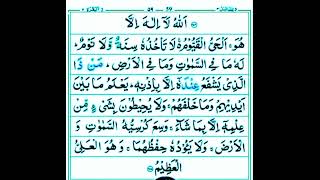 اَللّٰهُ لَاۤ اِلٰهَ اِلَّا
هُوَ ۚ اَلْحَیُّ الْقَیُّوْمُ ۚ لَا تَاْخُذُهٗ سِنَةٌ وَّلَا نَوْمٌ ؕ
لَهٗ مَا فِی السَّمٰوٰتِ وَمَا فِی الْاَرْضِ ؕ مَنْ ذَا
الَّذِیْ یَشْفَعُ عِنْدَهٗۤ اِلَّا بِاِذْنِهٖ ؕ یَعْلَمُ مَا بَیْنَ
اَیْدِیْهِمْ وَمَا خَلْفَهُمْ ۚ وَلَا یُحِیْطُوْنَ بِشَیْءٍ مِّنْ
عِلْمِهٖۤ اِلَّا بِمَا شَآءَ ۚ وَسِعَ كُرْسِیُّهُ السَّمٰوٰتِ وَ
الْاَرْضَ ۚ وَلَا یَـُٔوْدُهٗ حِفْظُهُمَا ۚ وَهُوَ الْعَلِیُّ
الْعَظِیْمُ